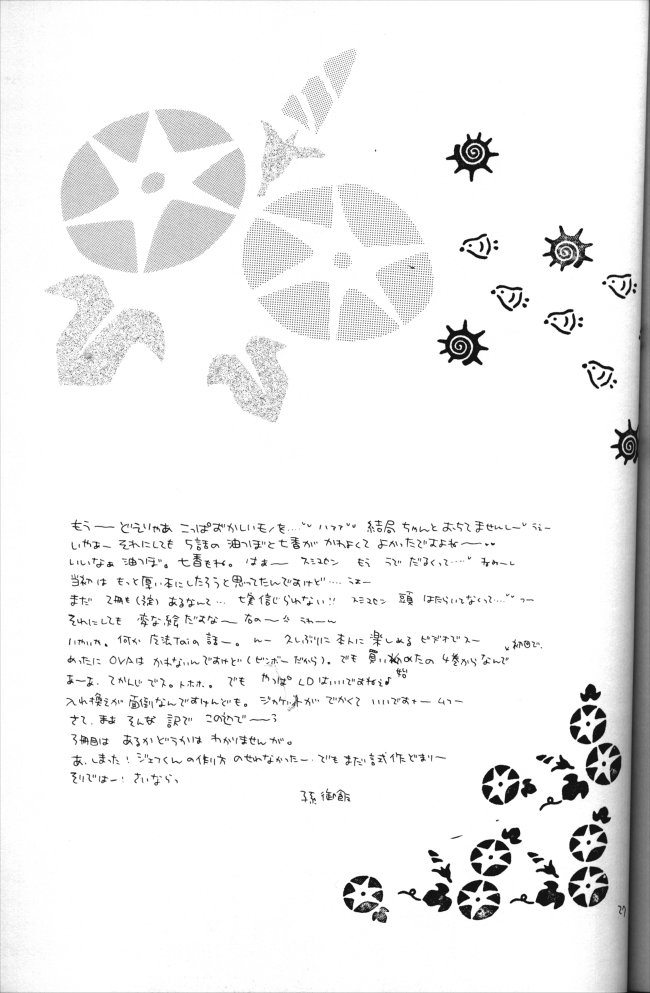 もうーー どえりゃあ こっぱずかしいモノを…… ハァァ 結局 ちゃんと おちてませんしー うえー
いやぁー それにしても 5話の 油つぼと七香が かわよくて よかったですよねー
いいなぁ 油つぼ。七香もね。はぁー スミマセン もう うで だるくって…
当初は もっと厚い本にしたろうと思ってたんですけど…… うえー
まだ 2冊も(予定) あるなんて… 信じられない!! スミマセン 頭 はたらいてなくて…
それにしても 変な絵だよなー なのー うわーん
いかいか。何か 魔法Taiの話ー。んー 久しぶりに 本人に 楽しめる ビデオでスー
めったに OVAは かわないんですけど(ビンボーだから)。でも 買い始めたの 4巻からなんで 初回で、
あーあ、てかんじでス。トホホ。 でも やっぱ LDはいいですねぇ♪
入れ換えが 面倒なんですけんども。 ジャケットが でかくて いいですナー ムフー
さて、まぁ そんな 訳で この辺でーー
3冊目は あるかどうかは わかりませんが。
あ、しまった! ジェフくん の作り方 のせれなかったー・でも まだ試作でありー
そりではー! さいなら、
孫 御飯
27